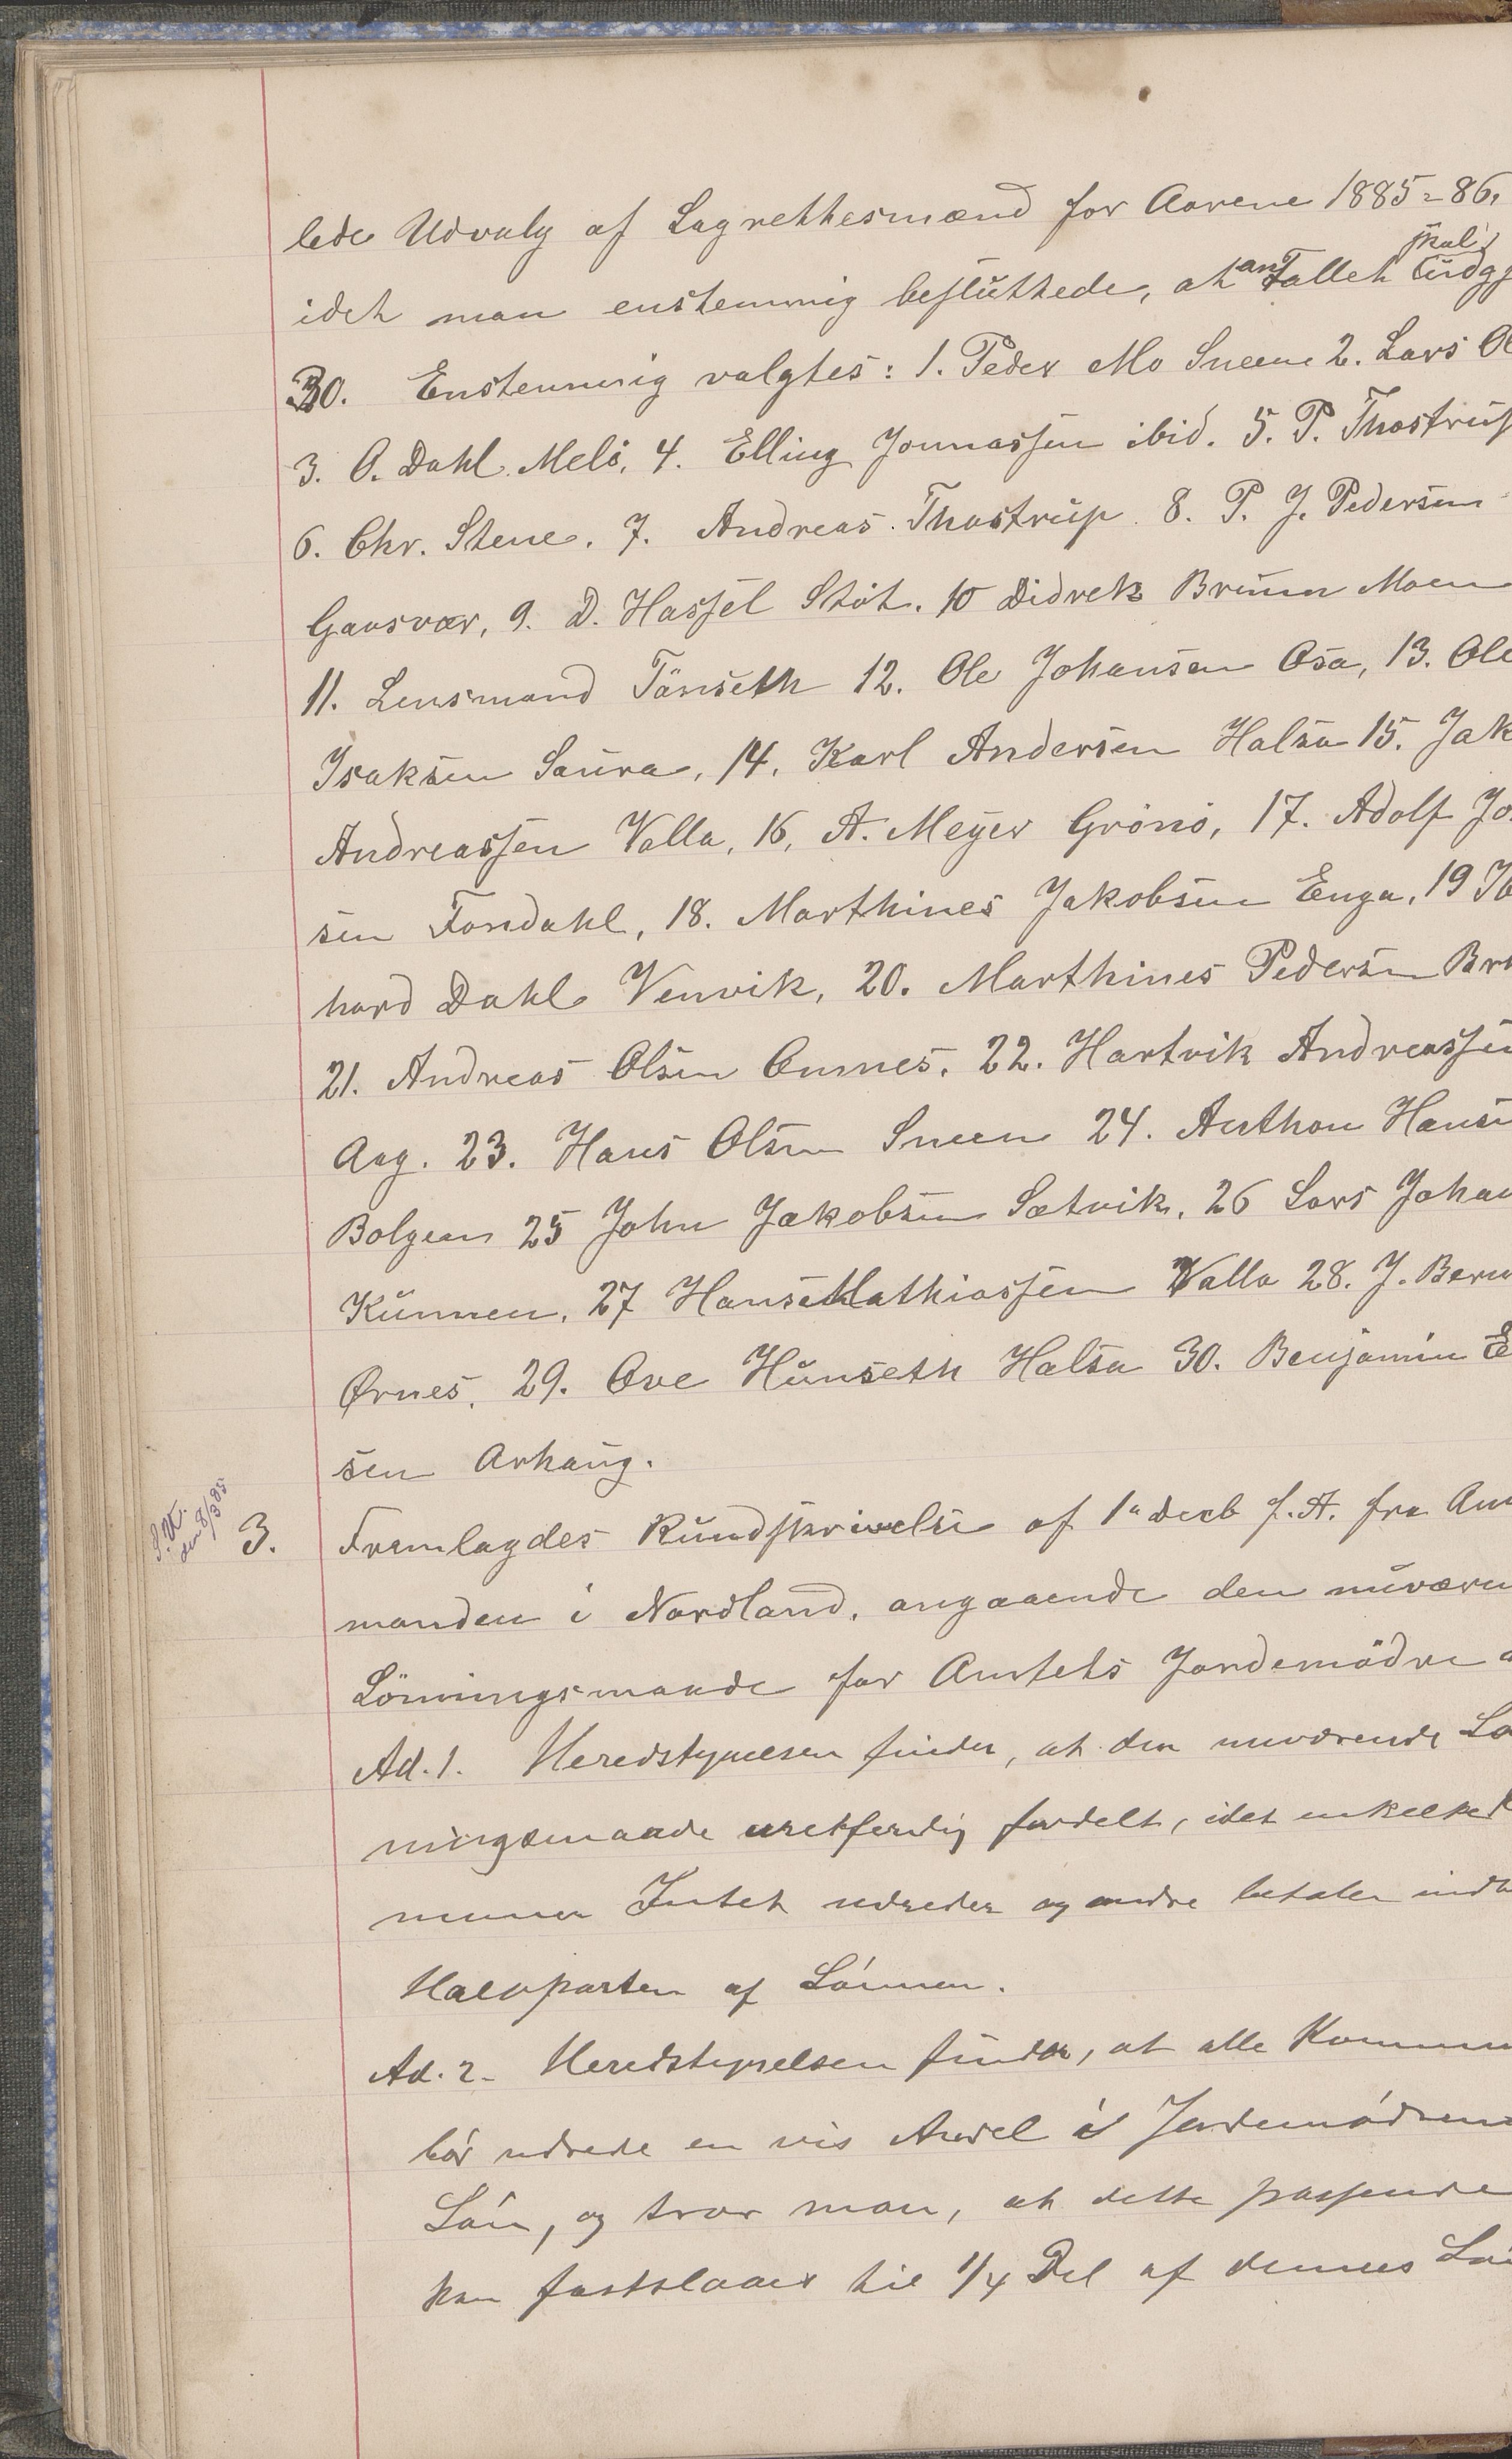 lede Udvalg af Lagrettesmænd for Aarene 1885-86,
idet man enstemmig besluttede, at antallet skal udgj
30. Enstemmig valgtes: 1. Peder Mo Sneen 2. Lars Ol
3. O. Dahl Melö, 4. Elling Jonnassen ibid. 5. P. Thostrup
6. Chr. Stene. 7. Andreas Thostrup. 8. P. J. Pedersen
Gaasvær, 9. D. Hassel Stöt. 10 Didrek Bruun Moen
11. Lensmand Tönseth 12. Ole Johansen Osa, 13. Ole
Isaksen Saura, 14. Karl Andersen Halsa 15. Jak
Andreassen Valla, 16. A. Meyer Grönö, 17. Adolf Jo
sen Fondahl, 18. Marthines Jakobsen Enga, 19
hard Dahl Venvik, 20. Marthines Pedersen Br
21. Andreas Olsen Onnes. 22. Hartvik Andreassen
Aag. 23. Hans Olsen Sneen 24. Anthon Hansen
Bolgen 25 John Jakobsen Sætvik, 26 Lars Johan
Kunnen, 27 Hans Mathiassen Valla 28. J. Bern
Ørnes, 29. Ove Hunseth Halsa 30. Benjamin E
sen Arhaug.
S. U.
den 8/3 85
3. Fremlagdes Rundskrivelse af 1ª Decb f. A. fra Amt
manden i Nordland, angaaende den nuværen
Lönningsmaade for Amtets Jordemödre
Ad. 1. Heredstyrelsen finder, at den nuværende Lö
ningsmaade uretferdig fordelt, idet enkelte K
muner Intet udreder og andre betaler indt
Halvparten af Lönnen.
Ad. 2. Heredstyrelsen finder, at alle Kommu
bör udrede en vis Andel i Jordemödrene
Lön, og tror man, at dette passende
kan fastslaaes til 1/4 Del af dennes Lön